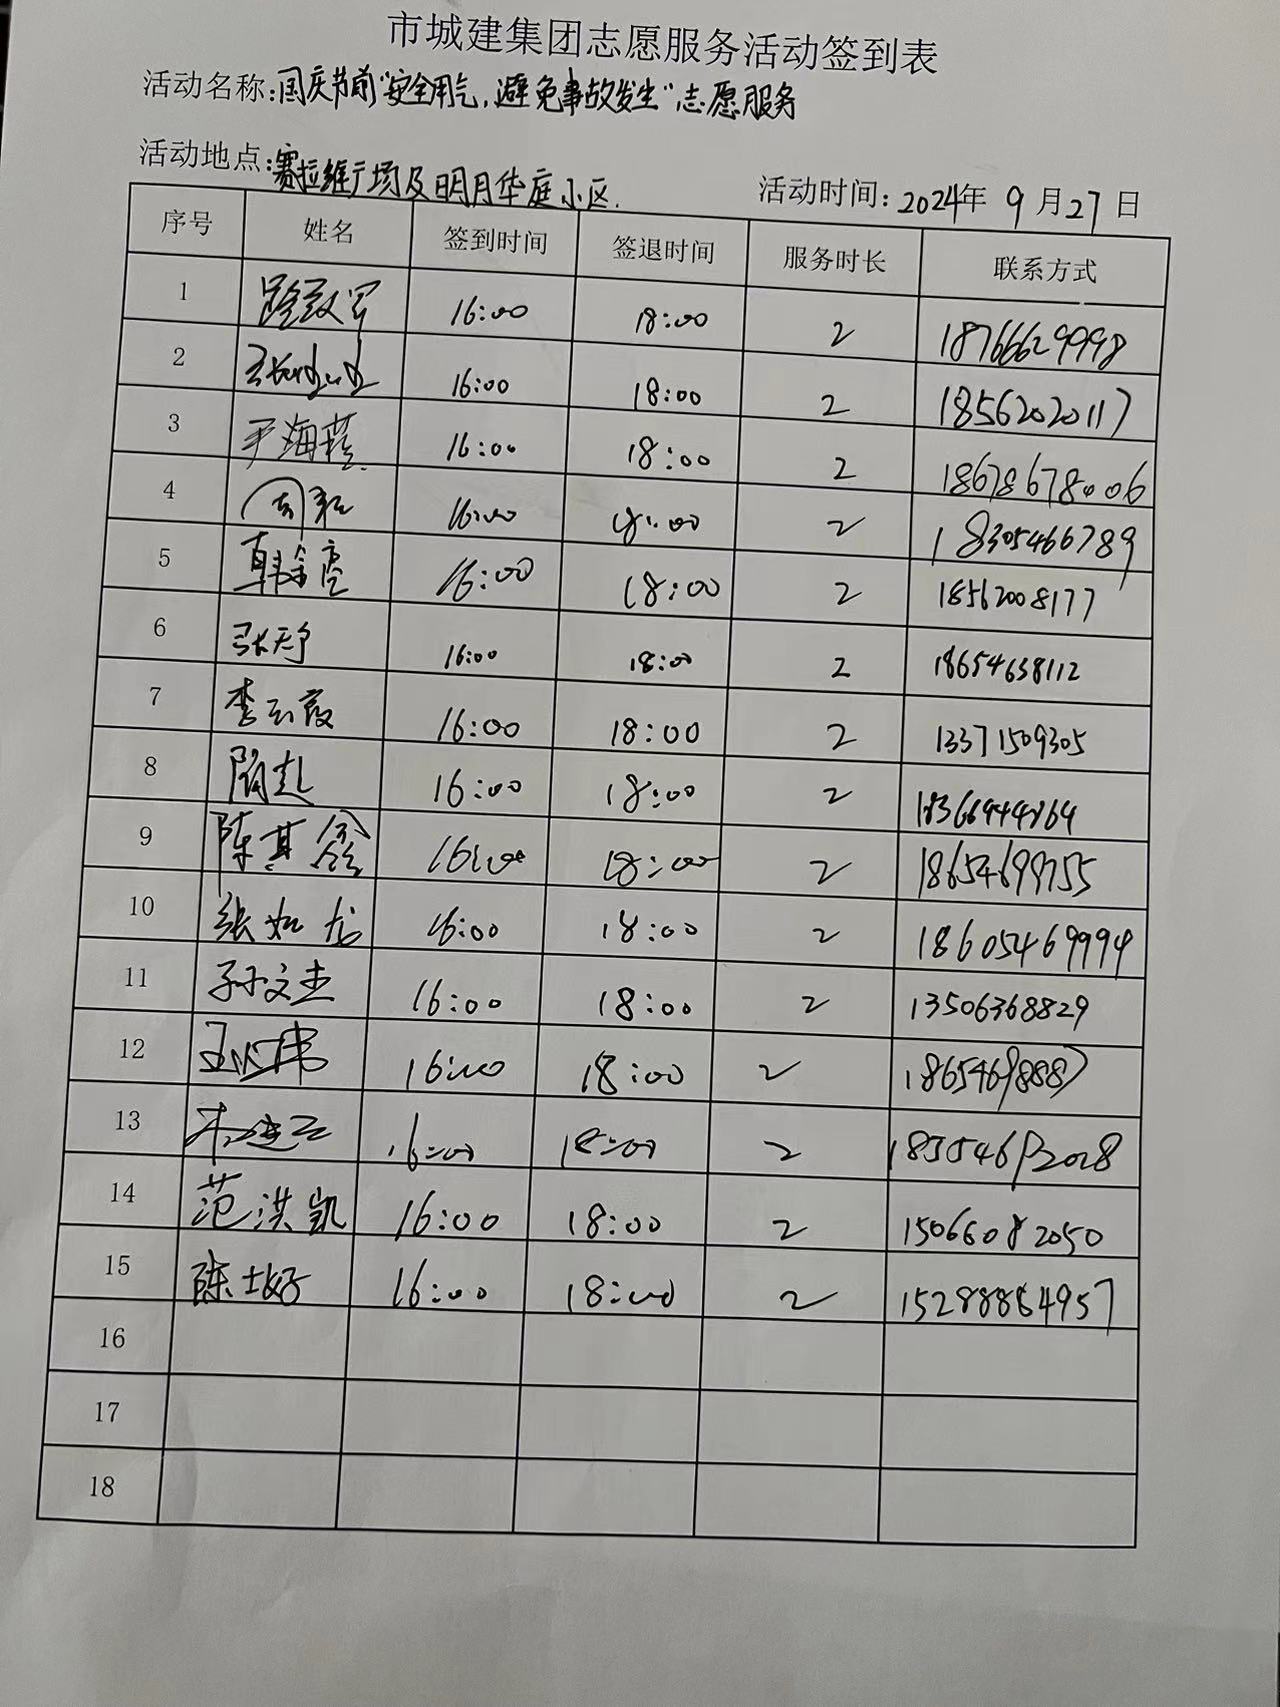 市城建集团志愿服务活动签到表
活动名称:国庆节前"安全用气,避免事故发生"志愿服务
活动地点:赛拉维广场及明月华庭小区.
活动时间: 2024年 9月27日
序号 姓名 签到时间 签退时间 服务时长 联系方式
1 16:00 18:00 2 18766629998
2 16:00 18:00 2 18562020117
3 尹海燕 16:00 18:00 2 18678678006
4 16:00 18:00 2 18305466789
5 韩金亮 16:00 18:00 2 18562008177
6 张天净 16:00 18:00 2 18654638112
7 李云霞 16:00 18:00 2 13371509305
8 16:00 18:00 2
9 陈其鑫 16:00 18:00 2 18654699755
10 张如龙 16:00 18:00 2 18605469994
11 孙文杰 16:00 18:00 2 13506368829
12 16:00 18:00 2 18654698887
13 16:00 18:00 2
14 范洪凯 16:00 18:00 2 15066082050
15 16:00 18:00 2 15288884957
16
17
18